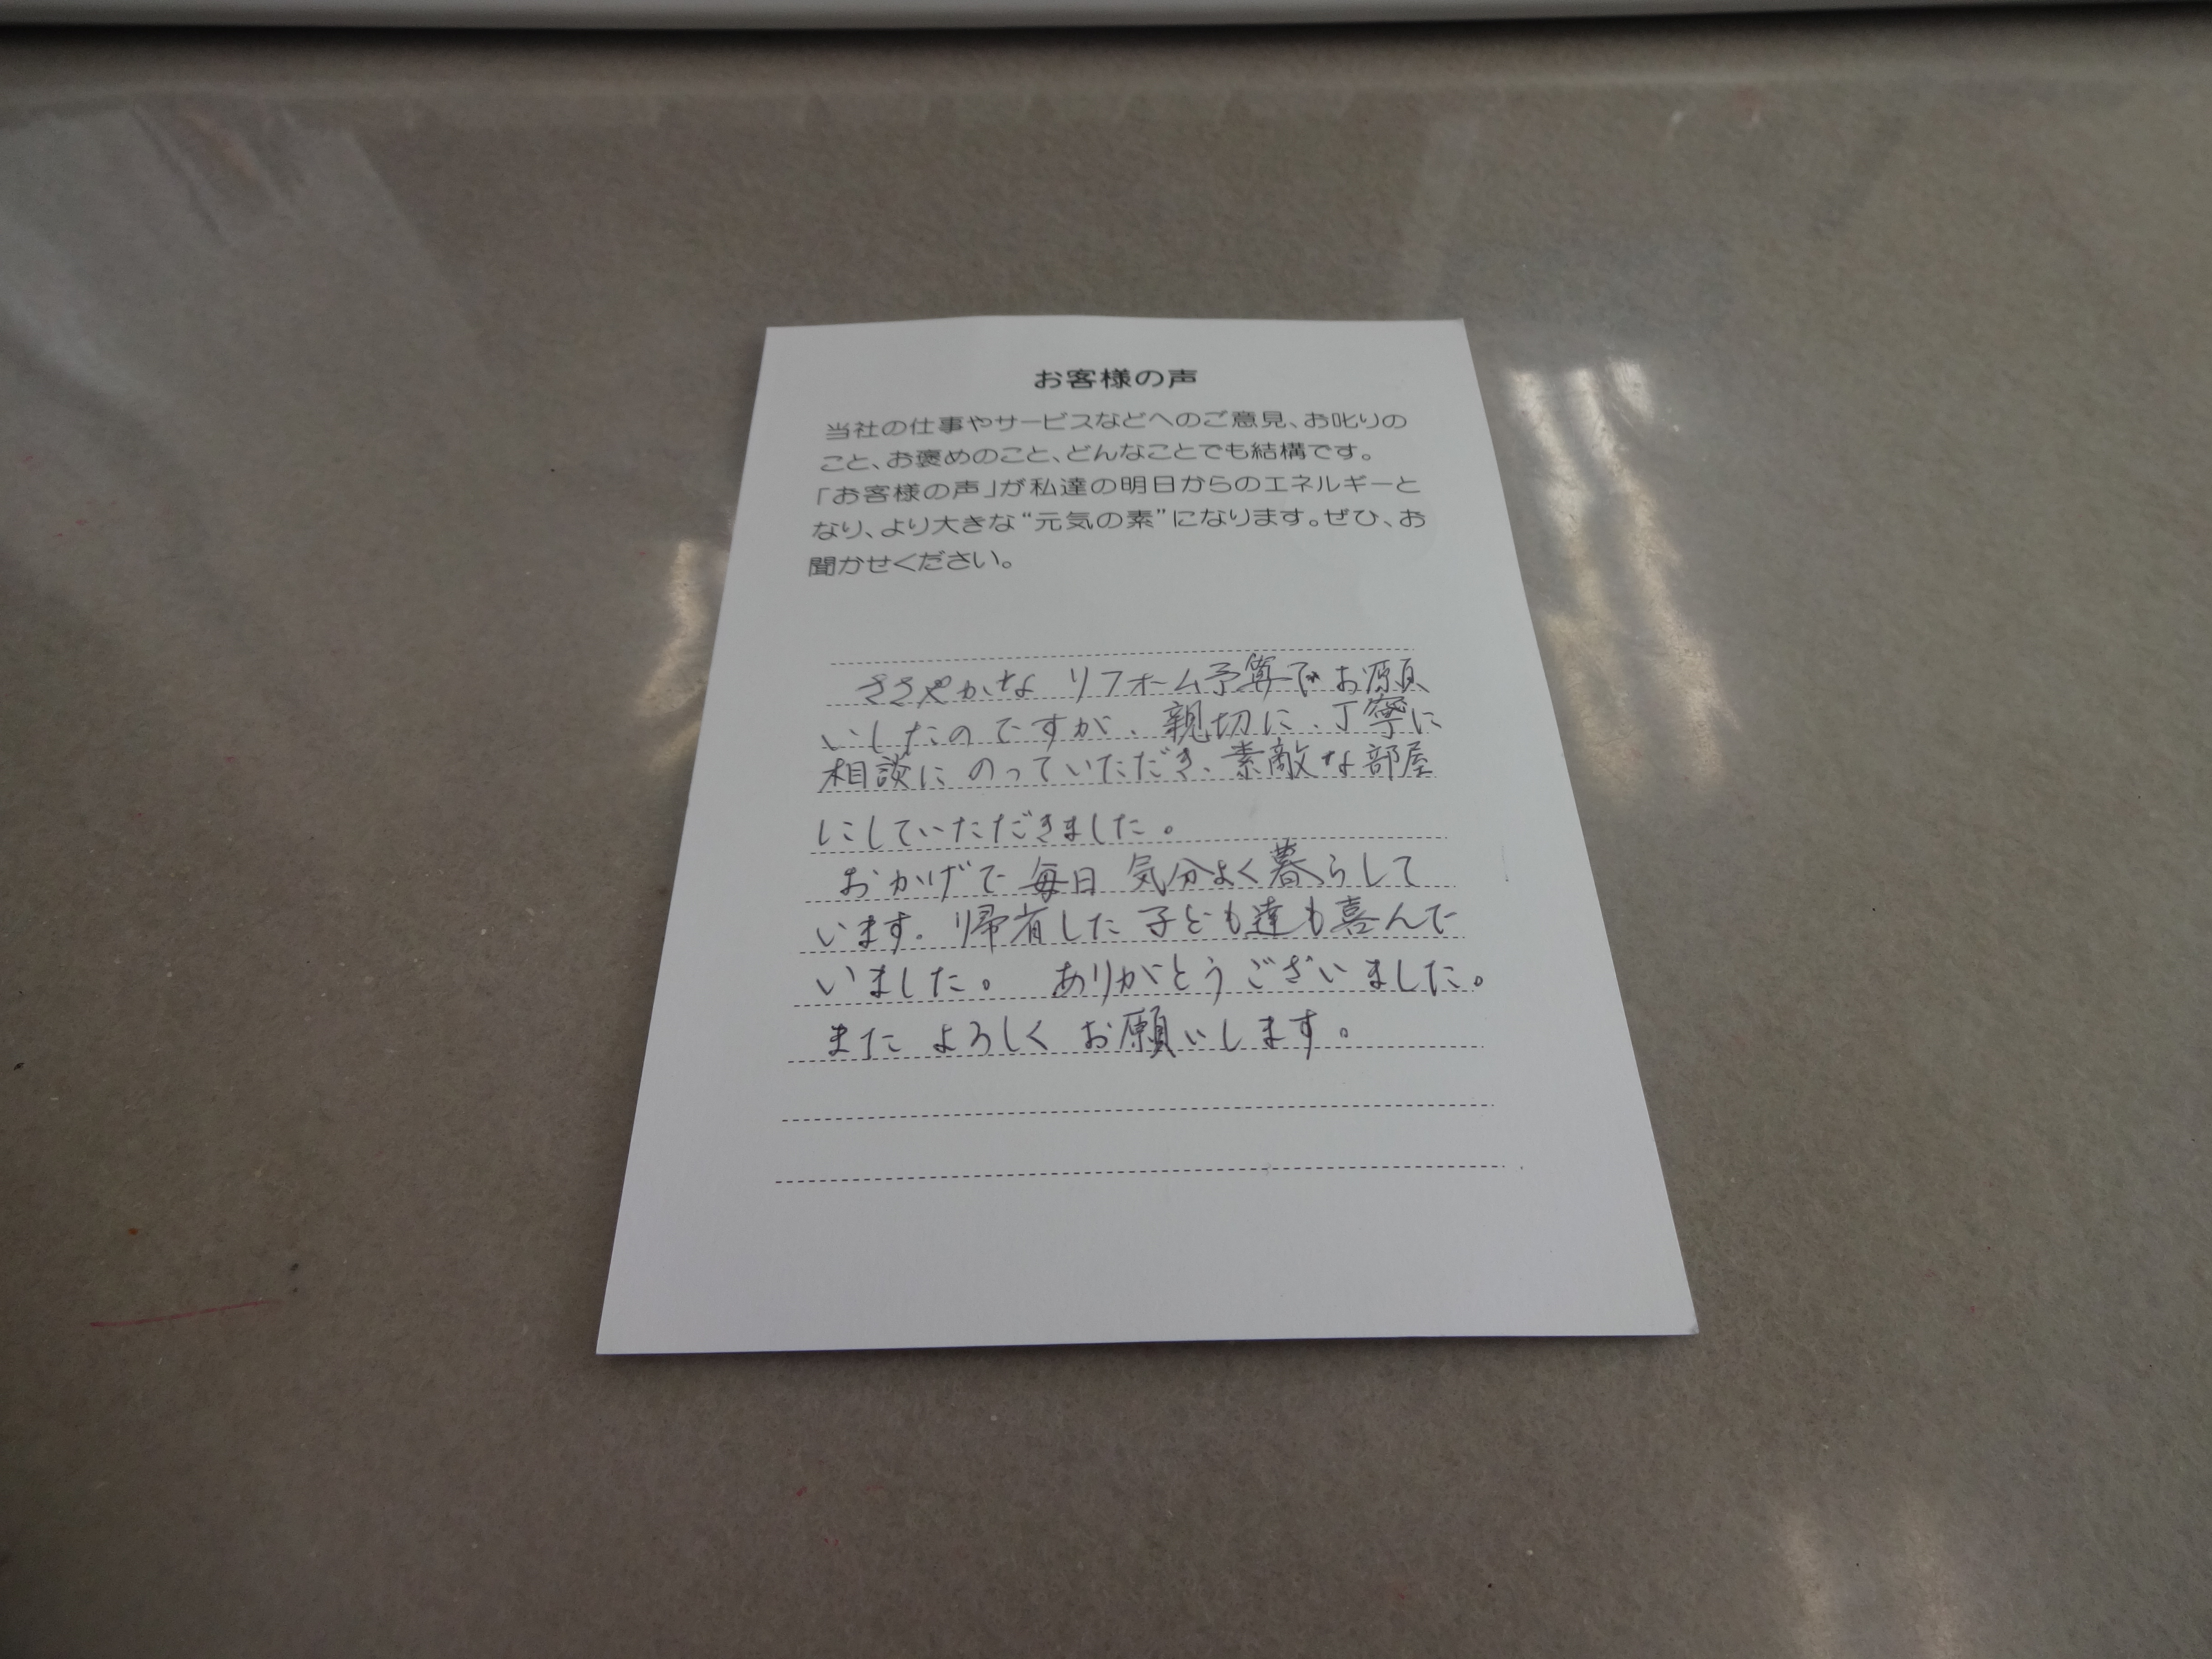 お客様の声
当社の仕事やサービスなどへのご意見、お叱りの
こと、お褒めのこと、どんなことでも結構です。
「お客様の声」が私達の明日からのエネルギーと
なり、より大きな“元気の素”になります。ぜひ、お
聞かせください。
ささやかな リフォーム予算でお願
いしたのですが、親切に、丁寧に
相談に のっていただき、素敵な部屋
にしていただきました。
おかげで 毎日 気分よく暮らして
います。帰省した 子ども達も喜んで
いました。 ありがとうございました。
また よろしく お願いします。